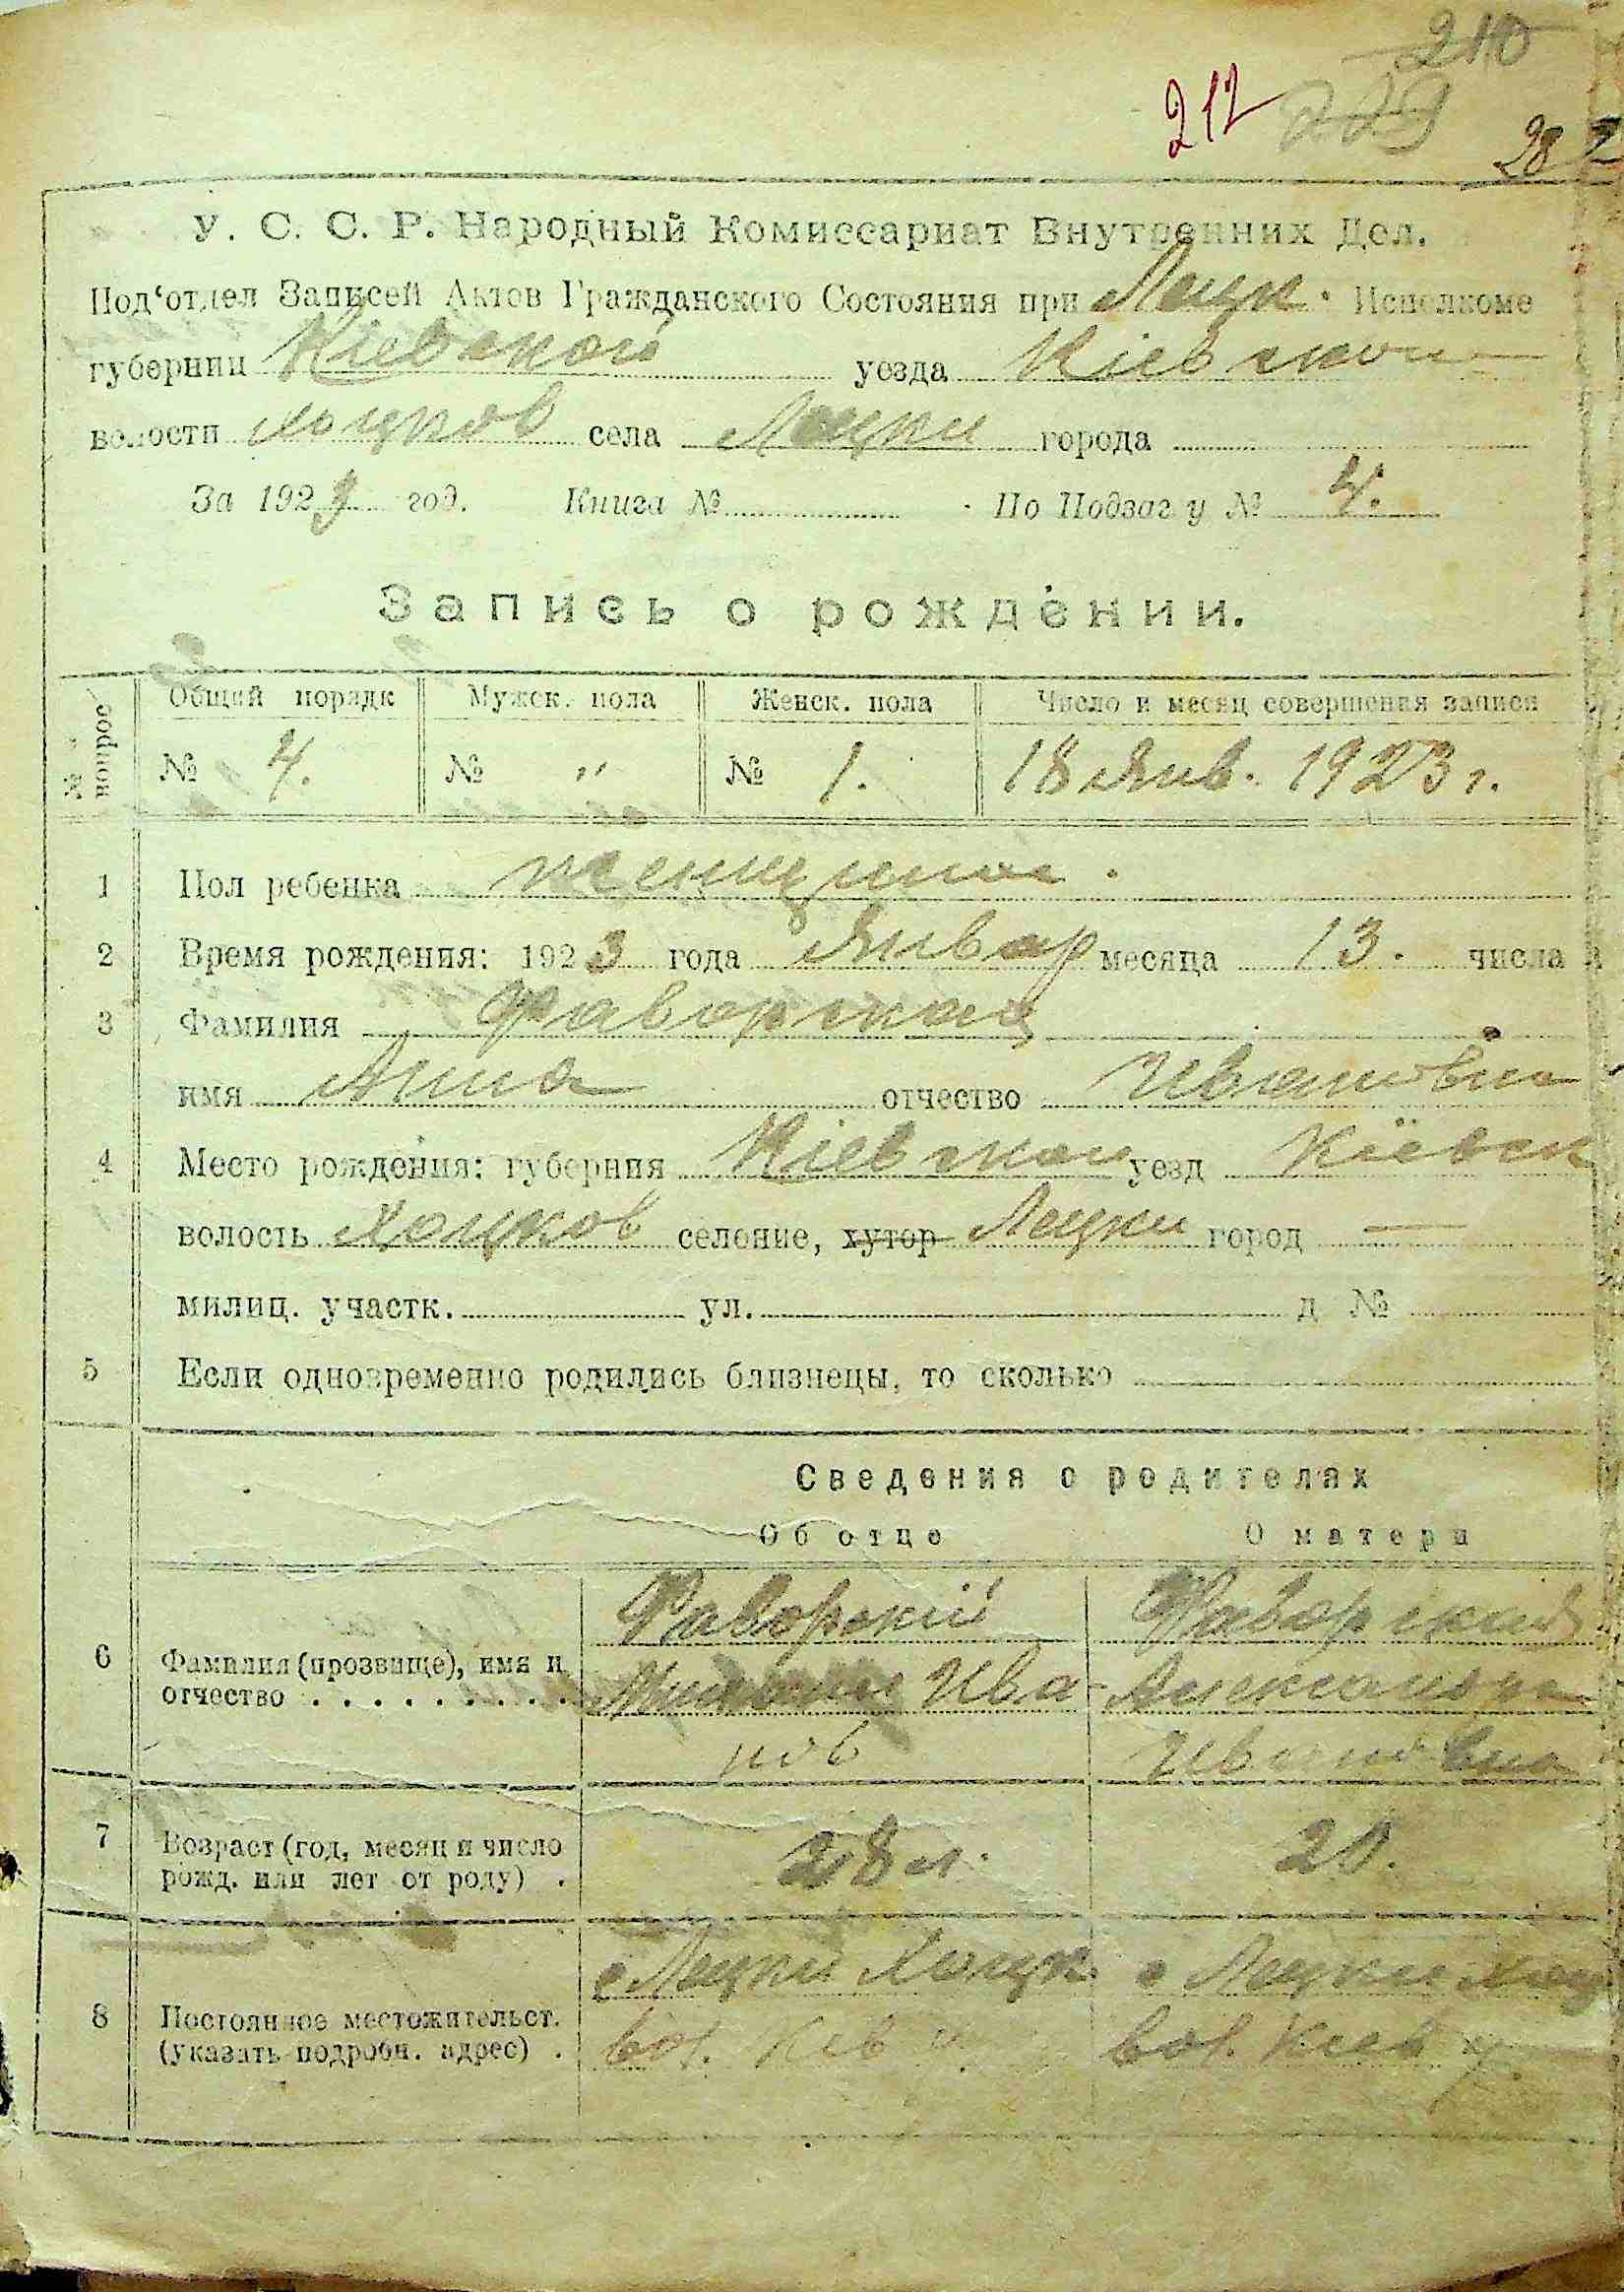 210
212 229
28
У. С. С. Р. Народный Комиссариат Внутренних Дел.
Под‘отдел Записей Актов Гражданского Состояния при Лецк. Исполкоме
губернии Кіевской уезда Кіевской
волости Хоцков села Лецки города
За 1923 год. Книга № По Подзаг у № 4.
Запись о рождении.
№ вопрос Общий порядк Мужск. пола Женск. пола Число и месяц совершения записи
№ 4. № „ № 1. 18 Янв. 1923 г.
1 Пол ребенка женщина.
2 Время рождения: 1923 года Январ месяца 13. числа
3 Фамилия Фаворская
имя Анна отчество Ивановна
4 Место рождения: губерния Кіевской уезд Кіевск
волость Хоцков селение, хутор Лецки город —
милиц. участк. ул. д №
5 Если одновременно родились близнецы, то сколько
Сведения о родителях
Об отце О матери
Фаворский Фаворская
6 Фамилия (прозвище), имя и Ива- Александра
отчество . . . . . . . . . нов Ивановна
7 Возраст (год, месяц и число 28 л. 20.
рожд. или лет от роду) .
с Лецки Хоцк. с Лецки Хоц
8 Постоянное местожительст. вол. Кіев у. вол. Кіев у.
(указать подробн. адрес) .